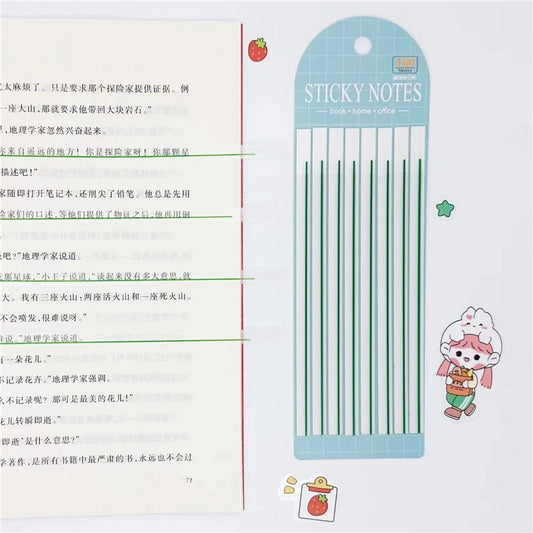 太麻烦了。只是要求那个探险家提供证据。例
一座大山，那就要求他带回大块岩石。”
，地理学家忽然兴奋起来。
来自遥远的地方！你是探险家呀！你那颗星
描述吧！”
家随即打开笔记本，还削尖了铅笔。他总是先用
险家们的口述，等他们提供了物证之后，他再用钢
吧？”地理学家说道。
那星球，”小王子说道，“谈起来没有多大意思，就
大。我有三座火山：两座活火山和一座死火山。
不会喷发，很难说呀。”
说。”地理学家说道。
有一朵花儿。”
不记录花卉。”地理学家强调。
么不记录呢？那可是最美的花儿！”
花儿转瞬即逝。”
即逝’是什么意思？”
学著作，是所有书籍中最严肃的书，永远也不会过
71
160
Sheets
STICKY NOTES
book • home • office